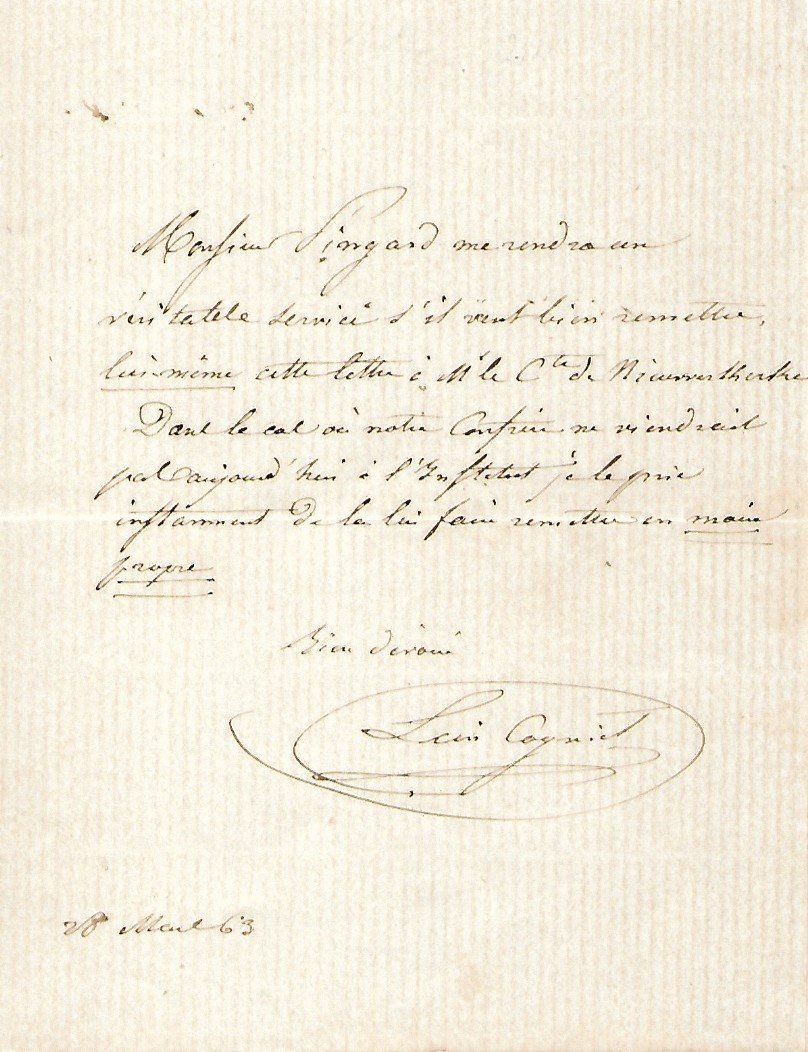 Monsieur Pingard me rendra un
véritable service s'il veut bien remettre
lui-même cette lettre à Mr le Cte de Nieuwerkerke
Dans le cas où notre Confrère ne viendrait
pas aujourd'hui à l'Institut je le prie
instamment de la lui faire remettre en main
propre
Bien dévoué
Léon Cogniet
28 Mars 63